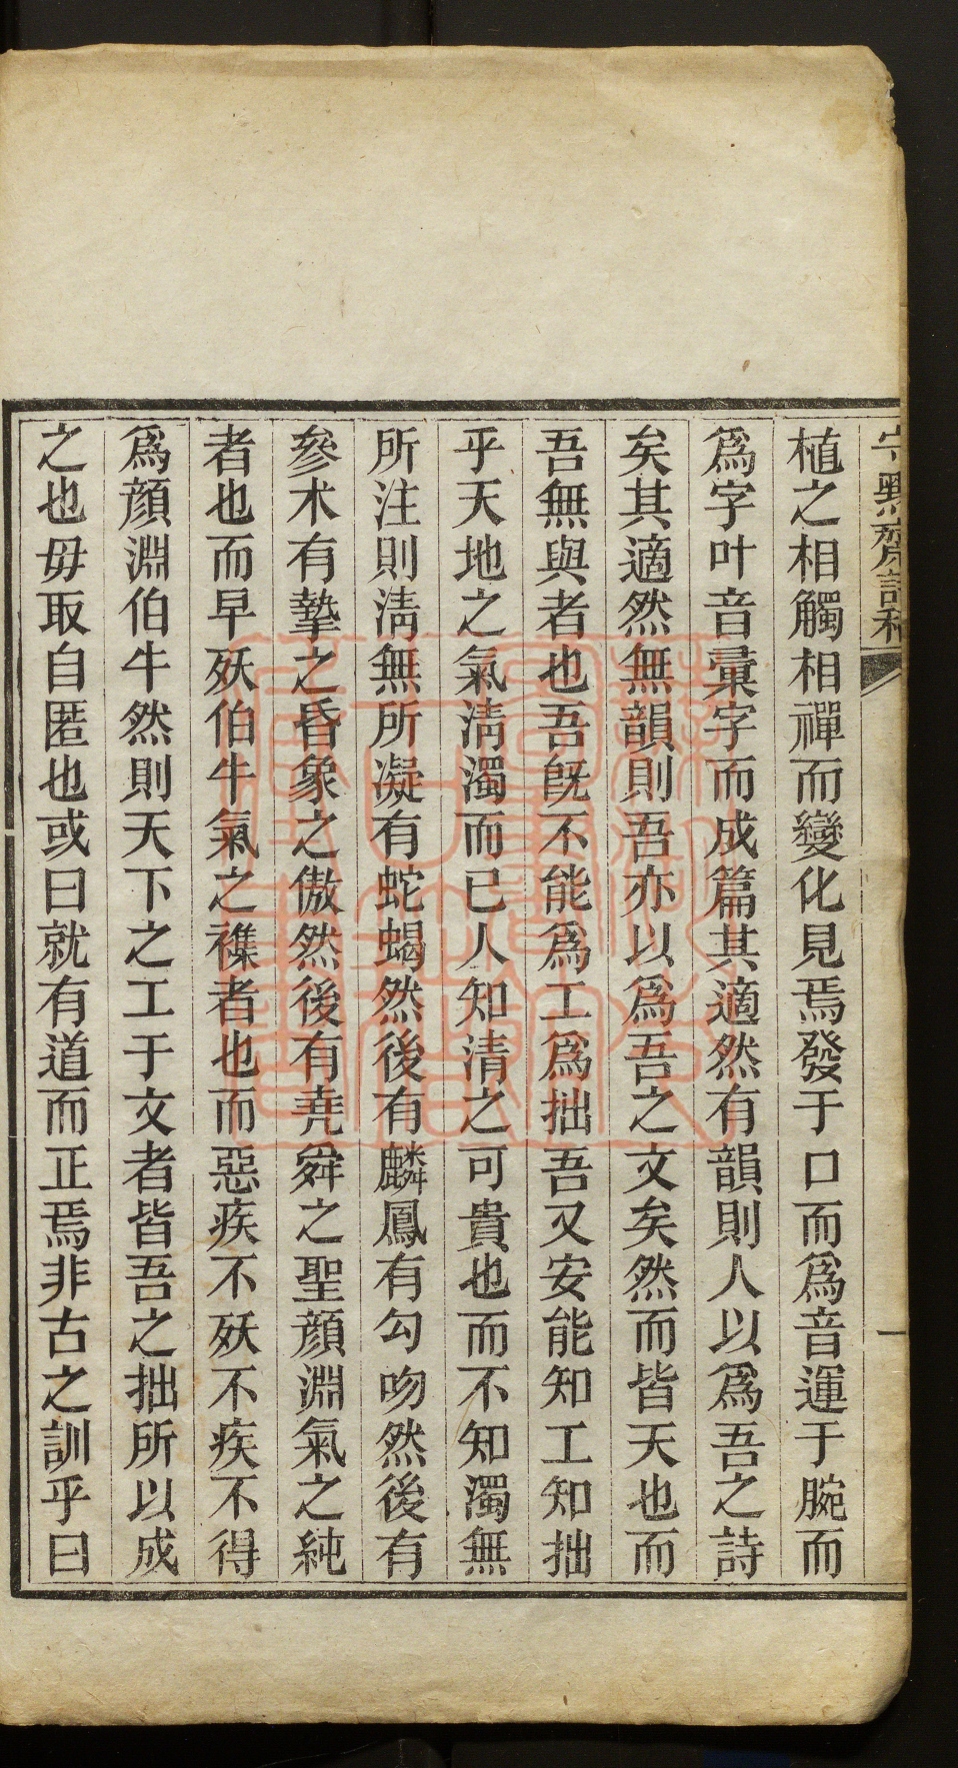 守默齋詩稿
一
植之相觸相禪而變化見焉發于口而爲音運于腕而
爲字叶音彙字而成篇其適然有韻則人以爲吾之詩
矣其適然無韻則吾亦以爲吾之文矣然而皆天也而
吾無與者也吾旣不能爲工爲拙吾又安能知工知拙
乎天地之氣淸濁而已人知清之可貴也而不知濁無
所注則淸無所凝有蛇蝎然後有麟鳳有勾吻然後有
參朮有摯之昏象之傲然後有堯舜之聖顔淵氣之純
者也而早殀伯牛氣之襍者也而惡疾不殀不疾不得
爲顔淵伯牛然則天下之工于文者皆吾之拙所以成
之也毋取自匿也或曰就有道而正焉非古之訓乎曰